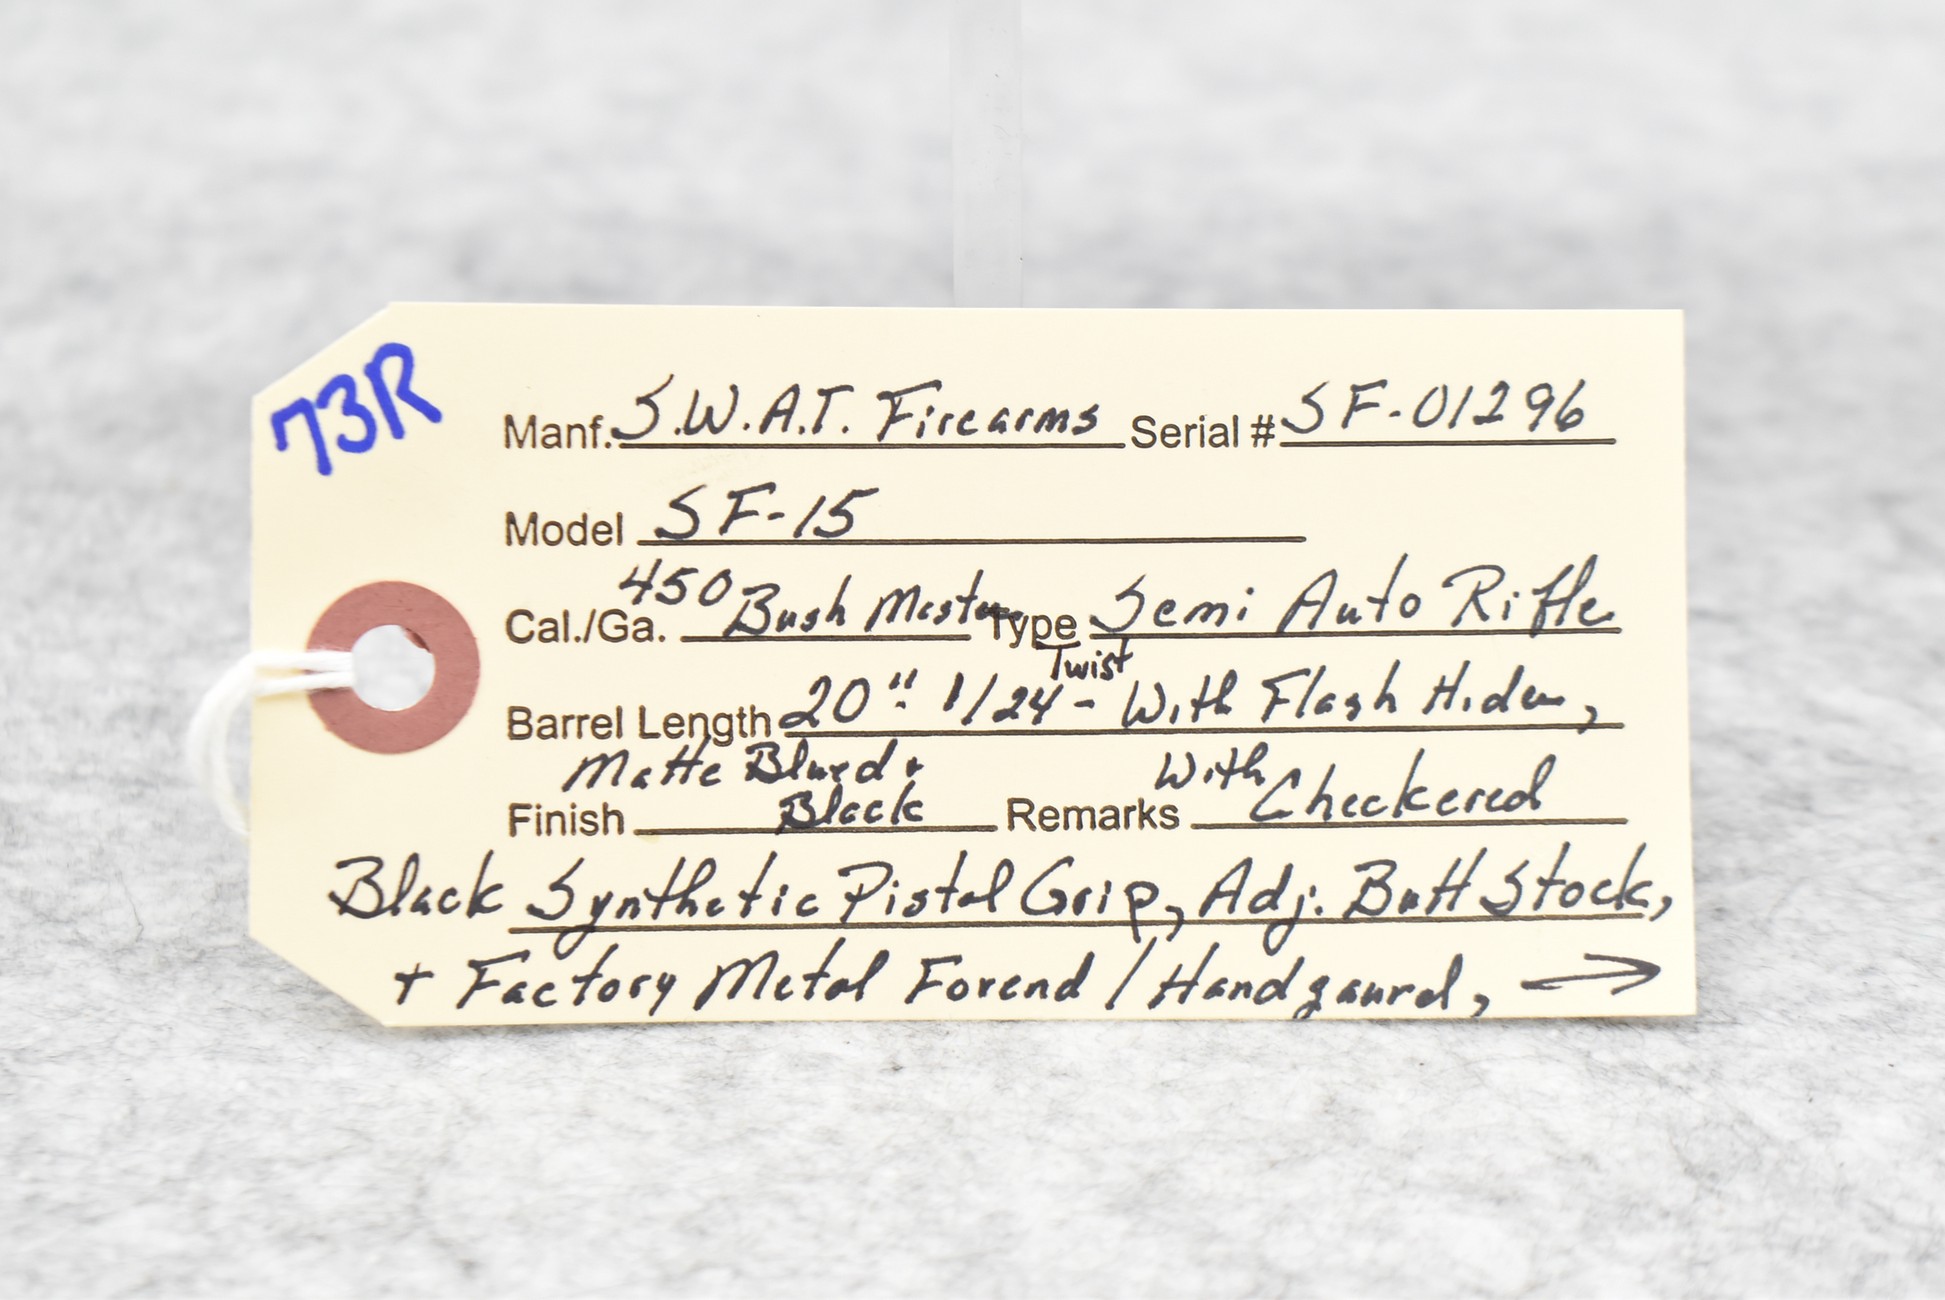 73R
Manf. S.W.A.T. Firearms Serial # SF-01296
Model SF-15
Cal./Ga. 450 Bush Master Type Semi Auto Rifle
Barrel Length 20" 1/24 Twist - With Flash Hider,
Finish Matte Blued + Black Remarks With Checkered
Black Synthetic Pistol Grip, Adj. Butt Stock,
+ Factory Metal Forend / Handgaurd, →